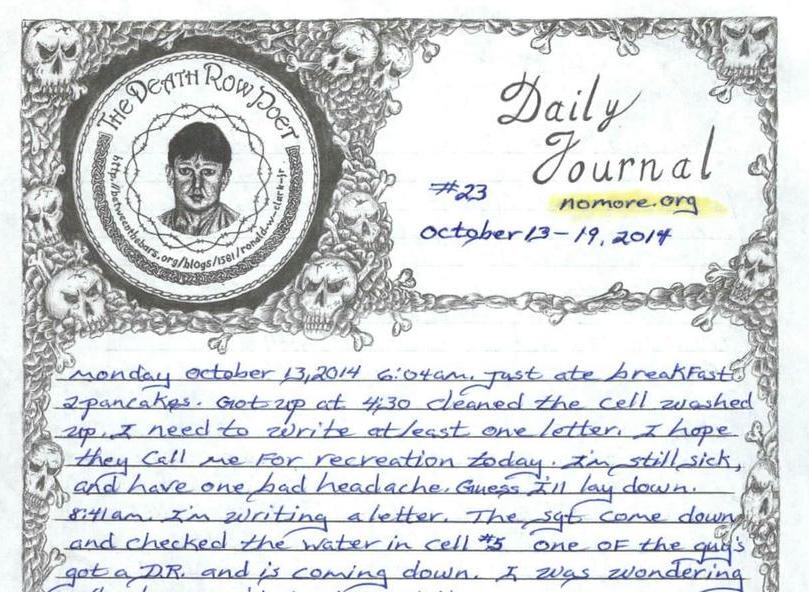 THE DEATH ROW POET
http://betweenthebars.org/blogs/1581/ronald-w-clark-jr
Daily
Journal
#23
nomore.org
October 13-19, 2014
Monday October 13, 2014 6:04am. Just ate breakfast
2 pancakes. Got up at 4:30 cleaned the cell washed
up. I need to write at least one letter. I hope
they call me for recreation today. I'm still sick,
and have one bad headache. Guess I'll lay down.
8:41am. I'm writing a letter. The sgt come down
and checked the water in cell #5 one of the guy's
got a D.R. and is coming down. I was wondering